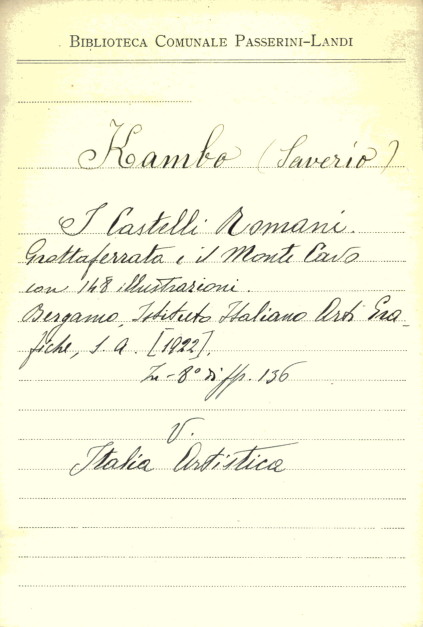 BIBLIOTECA COMUNALE PASSERINI-LANDI
Kambo (Saverio)
I Castelli Romani.
Grottaferrata e il Monte Cavo
con 148 illustrazioni.
Bergamo, Istituto Italiano Arti Gra-
fiche, s. a. [1922].
In-8° di pp. 136
V.
Italia Artistica